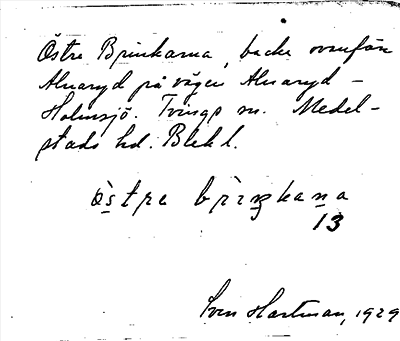 Östra Brinkarna, backe ovanför
Alnaryd på vägen Alnaryd –
Holmsjö. Tvings sn. Medel-
stads hd. Blekl.
òstra brìŋkaṇa
13
Sven Hartman, 1929